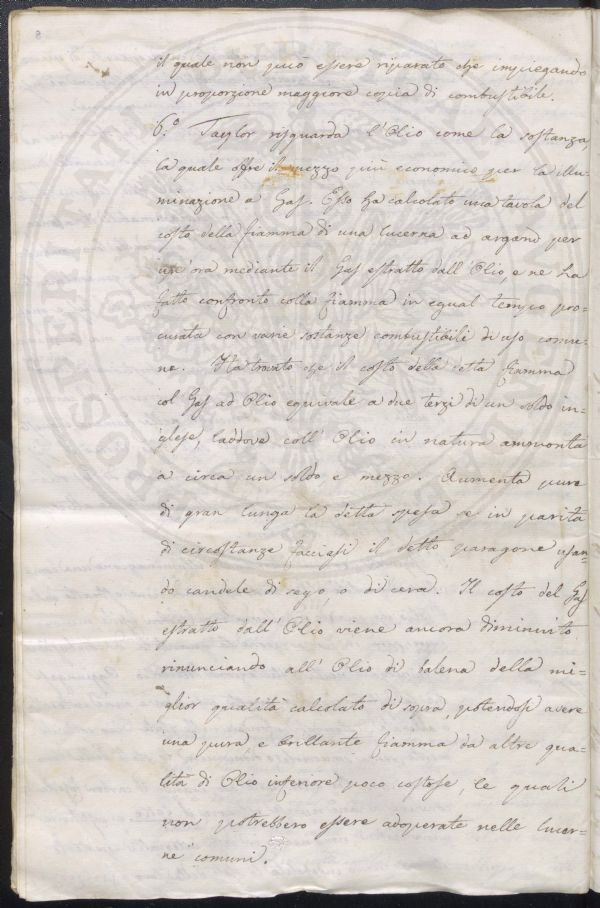 8
il quale non può essere riparato che impiegando
in proporzione maggiore copia di combustibile.
6.° Taylor risguarda l'Olio come la sostanza,
la quale offre il mezzo più economico per la illu=
minazione a Gas. Esso ha calcolato una tavola del
costo della fiamma di una lucerna ad argand per
un'ora mediante il Gas estratto dall'Olio, e ne ha
fatto confronto colla fiamma in egual tempo pro=
curata con varie sostanze combustibili di uso comu=
ne. Ha trovato che il costo della detta fiamma
col Gas ad Olio equivale a due terzi di un soldo in=
glese, laddove coll'Olio in natura ammonta
a circa un soldo e mezzo. Aumenta pure
di gran lunga la detta spesa se in parità
di circostanze facciasi il detto paragone usan=
do candele di sego, o di cera. Il costo del Gas
estratto dall'Olio viene ancora diminuito
rinunciando all'Olio di balena della mi=
glior qualità calcolato di sopra potendosi avere
una pura e brillante fiamma da altre qua=
lità di Olio inferiore poco costose, le quali
non potrebbero essere adoperate nelle lucer=
ne comuni.